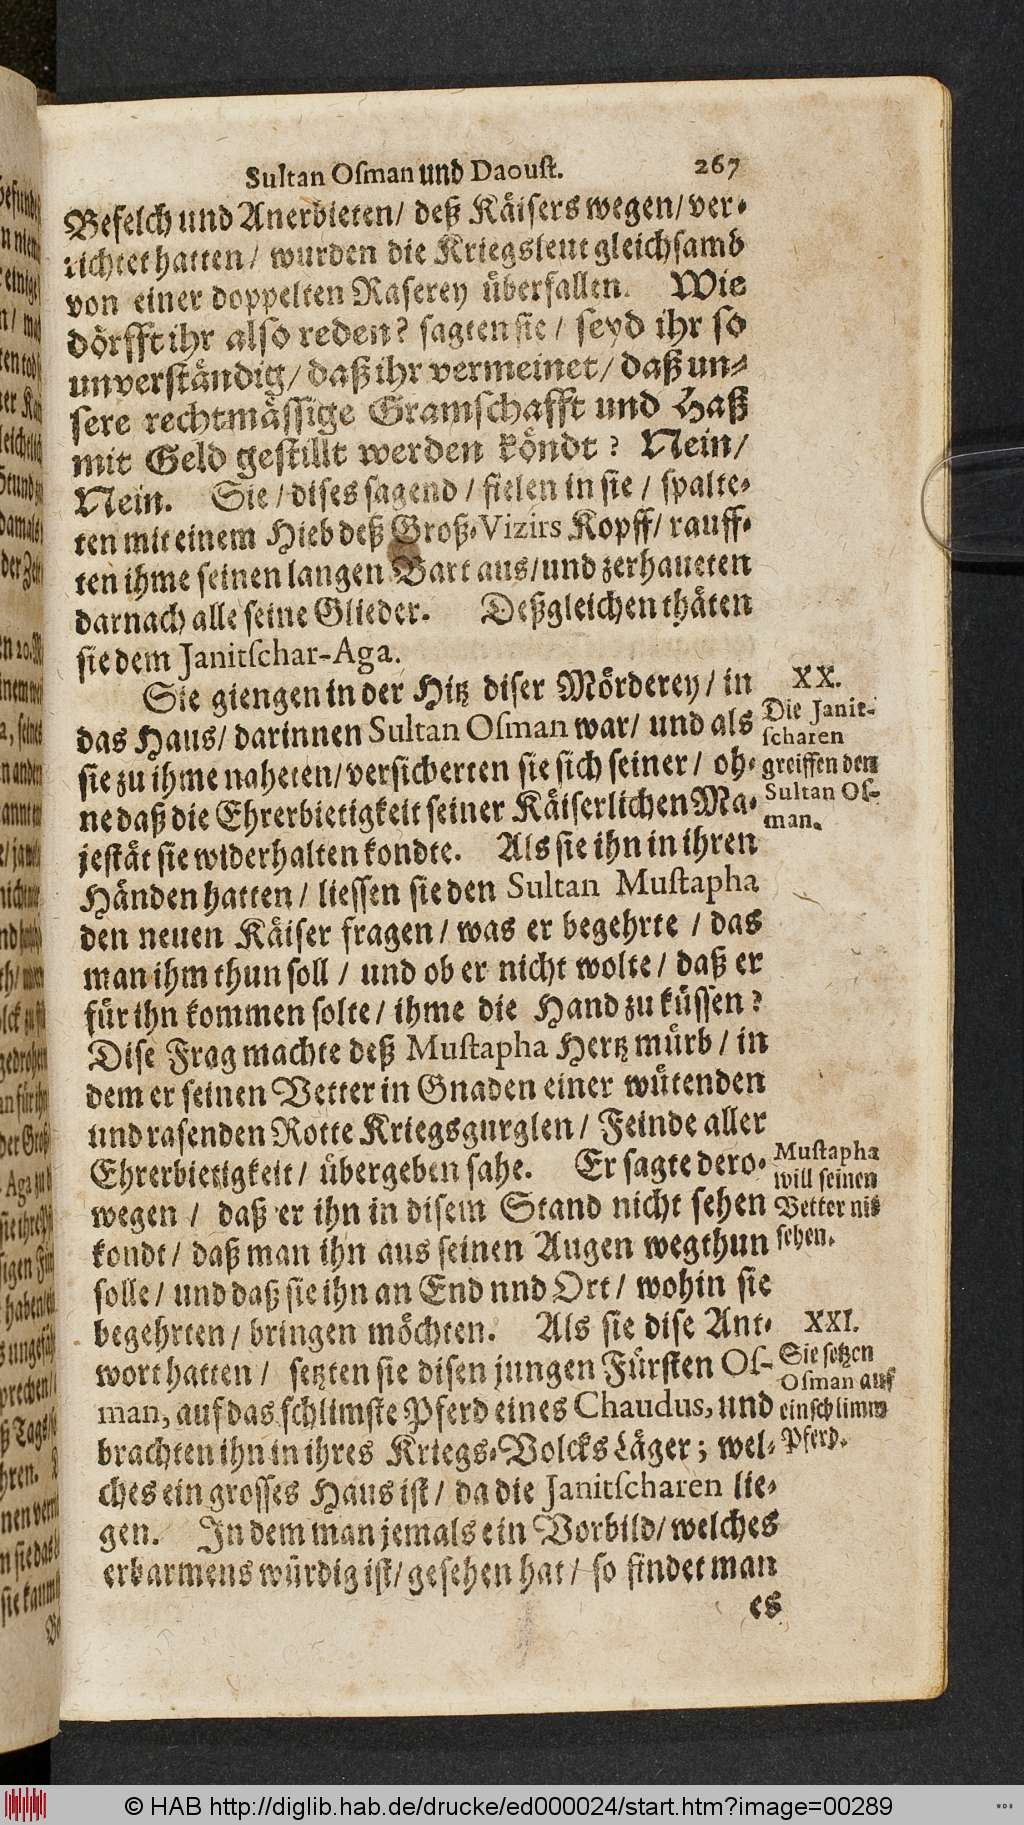 Sultan Oſman und Daouſt. 267
Befelch und Anerbieten/ deß Käisers wegen/ ver-
richtet hatten/ wurden die Kriegsleut gleichsamb
von einer doppelten Raserey überfallen. Wie
dörfft ihr also reden? sagten sie/ seyd ihr so
unverständig/ daß ihr vermeinet/ daß un-
sere rechtmässige Gramschafft und Haß
mit Geld gestillt werden köndt? Nein/
Nein. Sie/ dises sagend/ fielen in sie/ spalte-
ten mit einem Hieb deß Groß-Vizirs Kopff/ rauff-
ten ihme seinen langen Bart aus/ und zerhaueten
darnach alle seine Glieder. Deßgleichen thäten
sie dem Janitſchar-Aga.
Sie giengen in der Hitz diser Mörderey/ in
das Haus/ darinnen Sultan Oſman war/ und als
sie zu ihme naheten/ versicherten sie sich seiner/ oh-
ne daß die Ehrerbietigkeit seiner Käiserlichen Ma-
jestät sie widerhalten kondte. Als sie ihn in ihren
Händen hatten/ liessen sie den Sultan Muſtapha
den neuen Käiser fragen/ was er begehrte/ das
man ihm thun soll/ und ob er nicht wolte/ daß er
für ihn kommen solte/ ihme die Hand zu küssen?
Dise Frag machte deß Muſtapha Hertz mürb/ in
dem er seinen Vetter in Gnaden einer wütenden
und rasenden Rotte Kriegsgurglen/ Feinde aller
Ehrerbietigkeit/ übergeben sahe. Er sagte dero-
wegen/ daß er ihn in disem Stand nicht sehen
kondt/ daß man ihn aus seinen Augen wegthun
solle/ und daß sie ihn an End nnd Ort/ wohin sie
begehrten/ bringen möchten. Als sie dise Ant-
wort hatten/ setzten sie disen jungen Fürsten Oſ-
man, auf das schlimste Pferd eines Chaudus, und
brachten ihn in ihres Kriegs-Volcks Läger; wel-
ches ein grosses Haus ist/ da die Janitſcharen lie-
gen. In dem man jemals ein Vorbild/ welches
erbarmens würdig ist/ gesehen hat/ so findet man
es
XX.
Die Janit-
ſcharen
greiffen den
Sultan Oſ-
man.
Muſtapha
will seinen
Vetter nit
sehen.
XXI.
Sie setzen
Oſman auf
ein schlimm
Pferd.
© HAB http://diglib.hab.de/drucke/ed000024/start.htm?image=00289